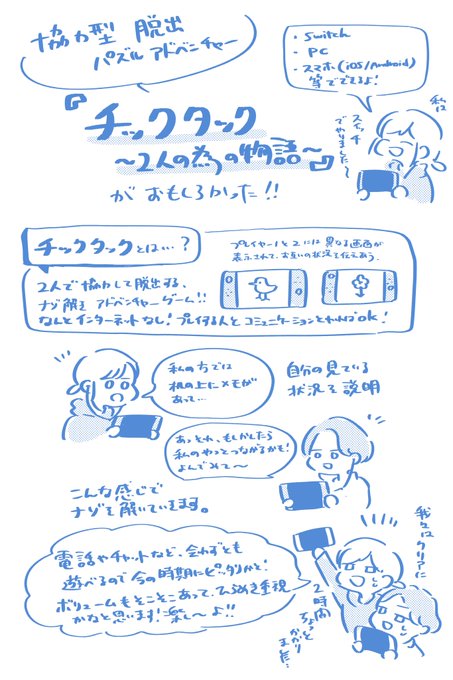 協力型 脱出
パズルアドベンチャー
・Switch
・PC
・スマホ(iOS/Android)
等でできるよ!
私は
スイッチ
でやりました〜
『チックタック
〜2人の為の物語〜』
がおもしろかった!!
チックタックとは…?
プレイヤー1と2には異なる画面が
表示されて、お互いの状況を伝えあう。
2人で協力して脱出する、
ナゾ解きアドベンチャーゲーム!!
なんとインターネットなし!プレイする人とコミュニケーションとれればok!
私の方では
机の上にメモが
あって…
自分の見ている
状況を説明
あっそれ、もしかしたら
私のやつとつながるかも!
よんでみて〜
こんな感じで
ナゾを解いていきます。
我々はクリアに
2時間
ちょっと
かかり
ました
電話やチャットなど、会わずとも
遊べるので今の時期にピッタリかと!
ボリュームもそこそこあって、ひらめき重視
かなと思います!楽し〜よ!!